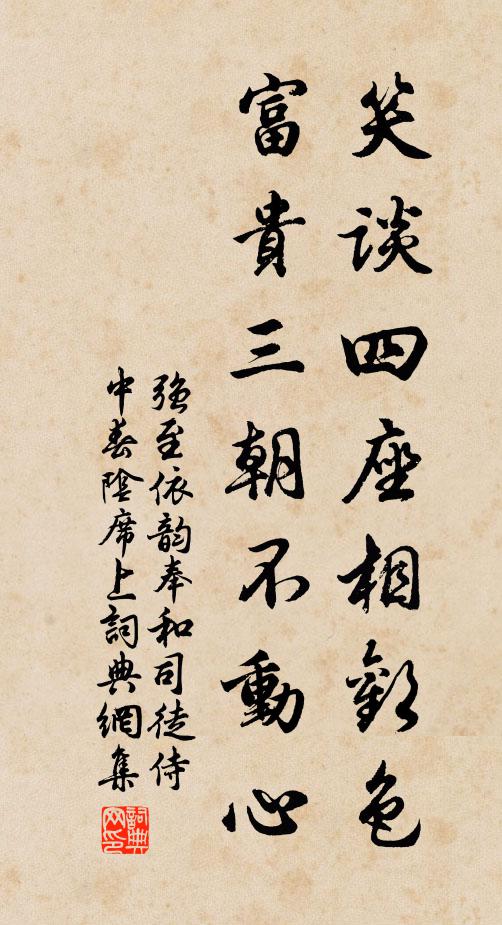 笑談四座相歡色
富貴三朝不動心
強至依韵奉和司徒侍
中春陰席上詞典網集
詞典
网印